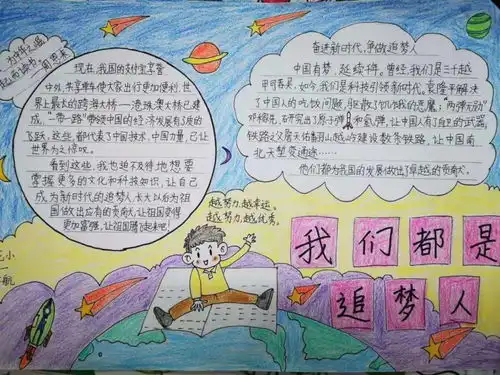 为中华之崛
起而读书
周恩来
现在,我国的支付宝享誉
中外,共享单车使大家出行更加便利,世
界上最长的跨海大桥—港珠澳大桥已建
成,"带一路"带领中国的经济发展有了质的
飞跃,这些,都代表了中国技术,中国力量,已让
世界为之惊叹。
看到这些,我也迫不及待地想要
掌握更多的文化和科技知识,让自己
成为新时代的追梦人,长大以后为祖
国做出应有的贡献,让祖国变得
更加富强,让祖国腾飞起来吧!
奋进新时代,争做追梦人
中国有梦,延续一件。曾经,我们是三十越
甲可吞吴,如今,我们是科技引领新时代,袁隆平解决
了中国人的吃饭问题,驱散了饥饿的恶魔,"两弹元勋"
邓稼先,研究出了原子弹和氢弹,让中国人有了自卫的武器,
铁路之父詹天佑翻山越岭建设数条铁路,让中国南
北天堑变通途……
他们都为我国的发展做出了卓越的贡献。
越努力,越幸运。
越努力,越优秀。
我们都是
追梦人
小
一
航